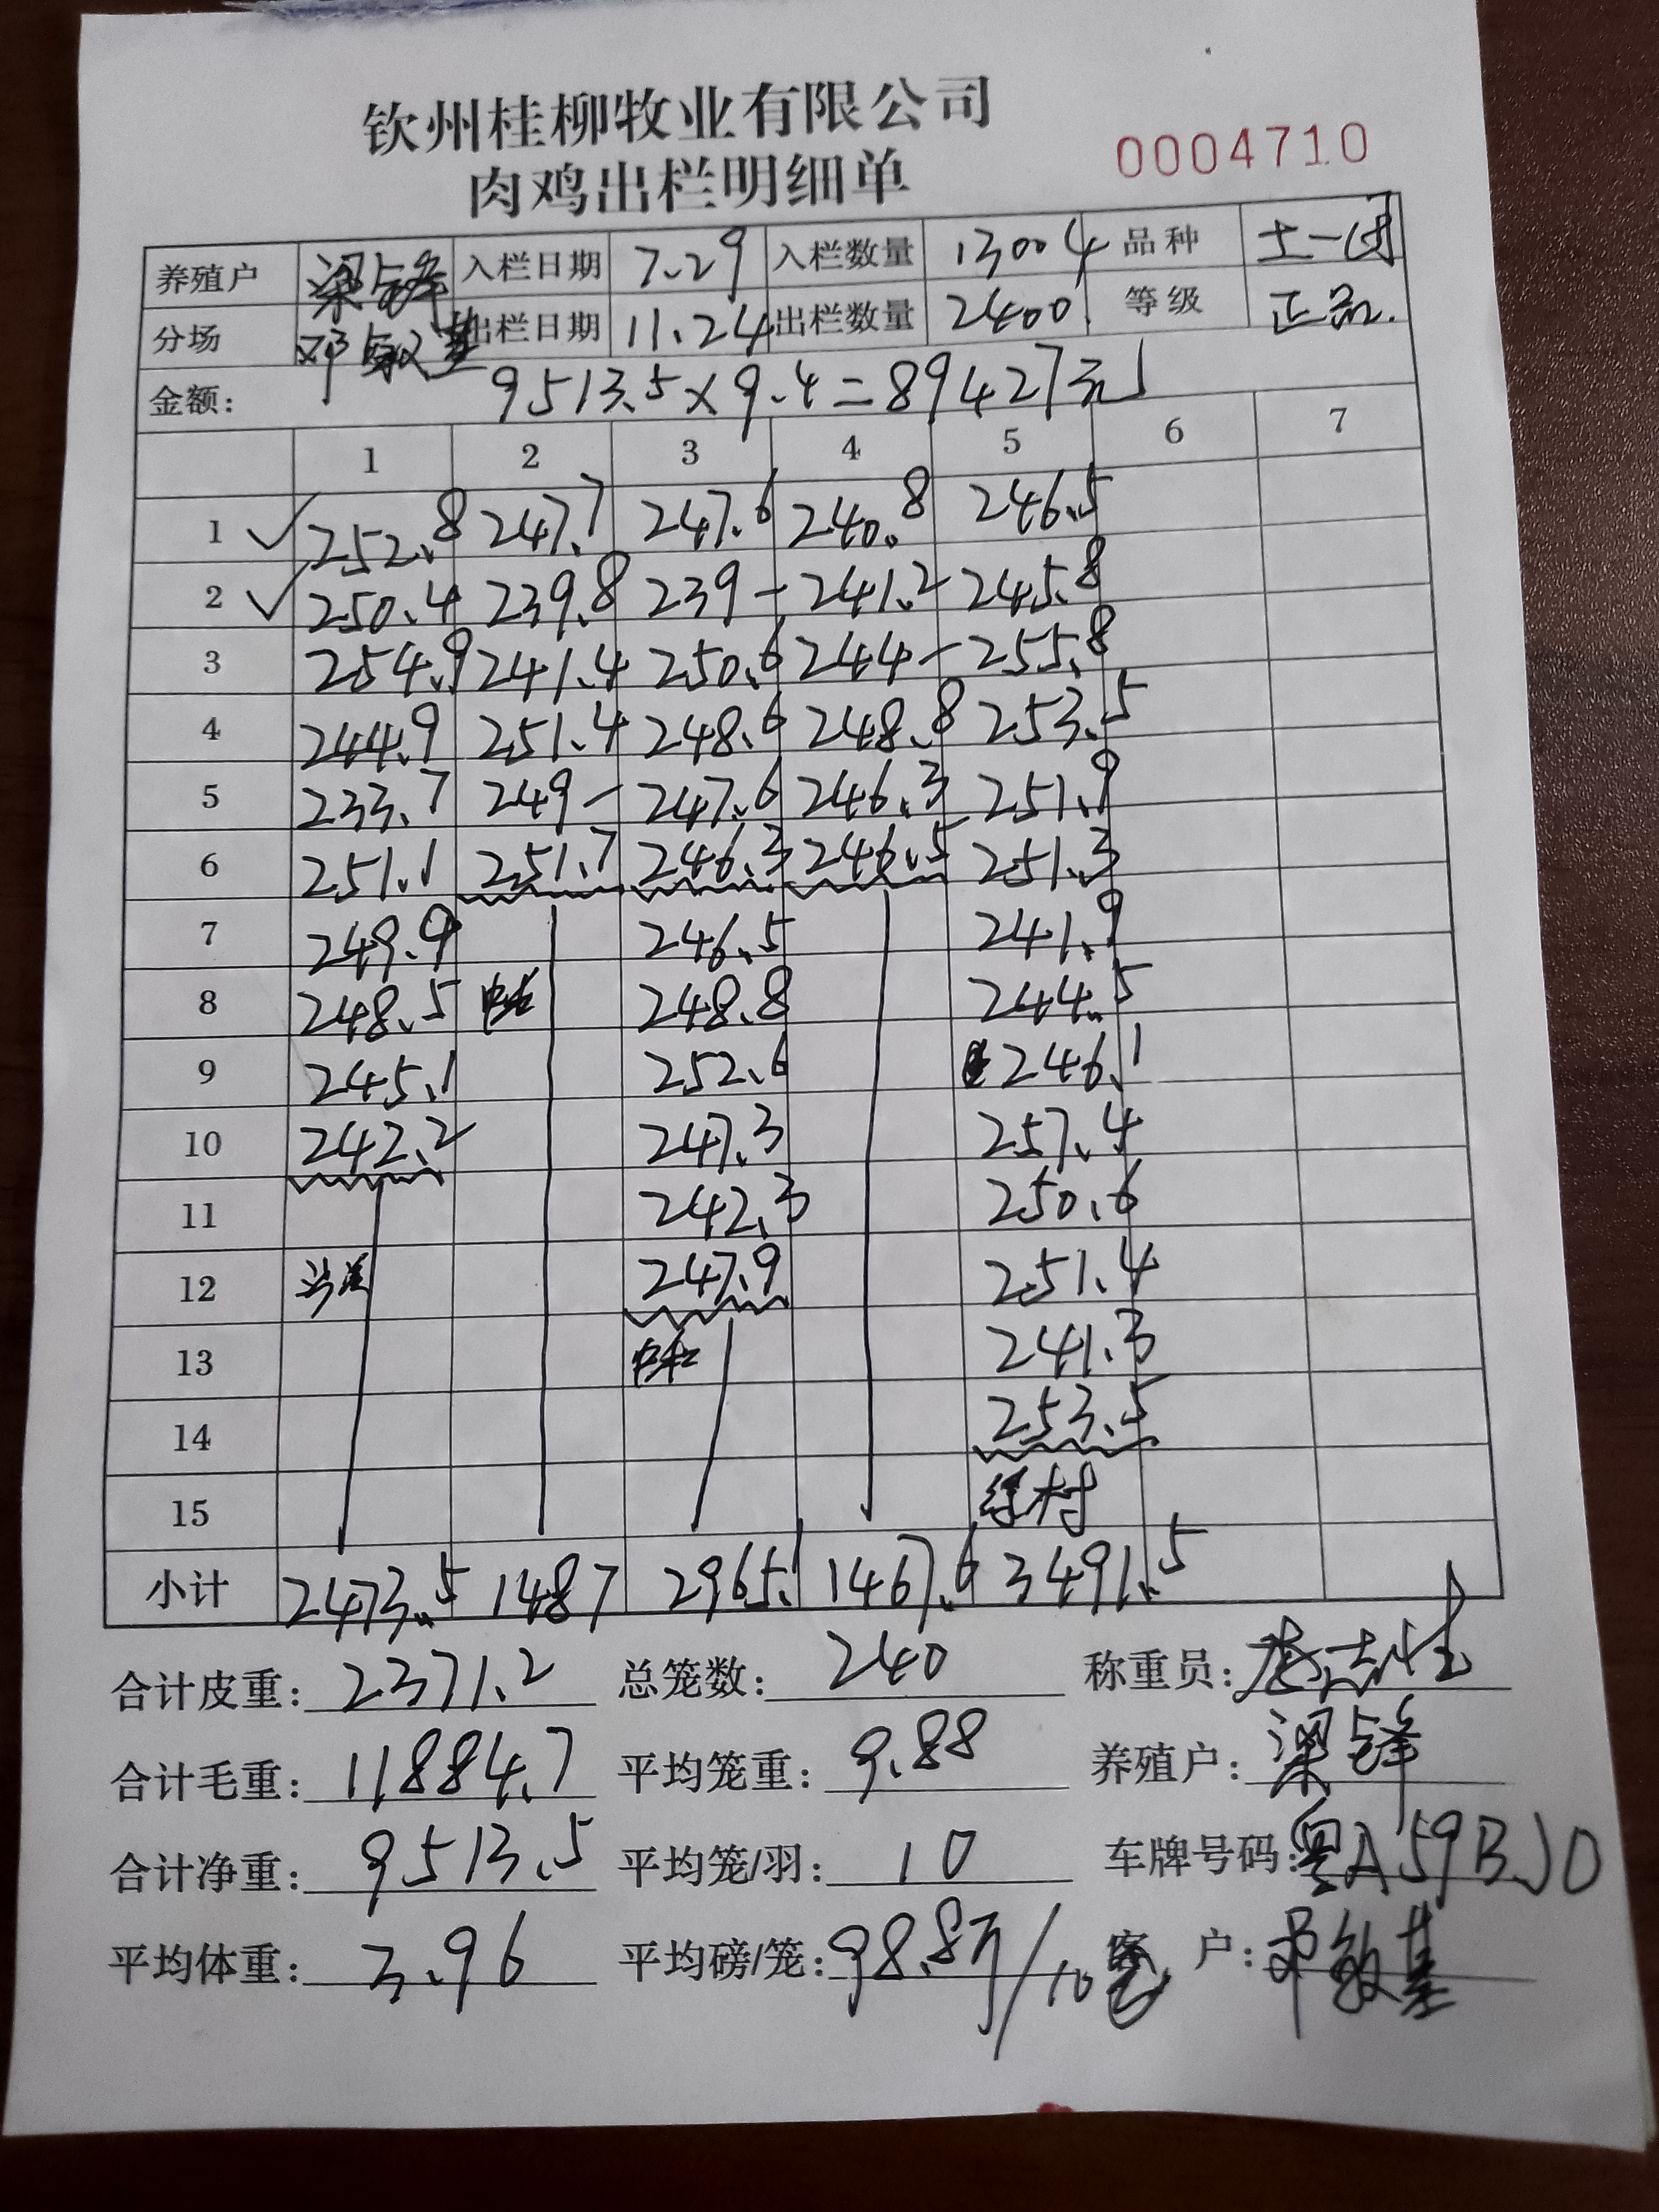 钦州桂柳牧业有限公司
肉鸡出栏明细单 0004710
养殖户 梁锋 入栏日期 7.29 入栏数量 13004 品种 土一
分场 邓敏基 出栏日期 11.24 出栏数量 2400 等级 正品.
金额: 9513.5×9.4=89427元
1 2 3 4 5 6 7
1 ✓ 252.8 247.7 247.6 240.8 246.5
2 ✓ 250.4 239.8 239- 241.2 245.8
3 254.9 241.4 250.6 244- 255.8
4 244.9 251.4 248.6 248.8 253.5
5 233.7 249- 247.6 246.3 251.9
6 251.1 251.7 246.3 246.5 251.3
7 249.9 246.5 241.9
8 248.5 248.8 244.5
9 245.1 252.6 246.1
10 242.2 247.3 257.4
11 242.3 250.6
12 247.9 251.4
13 241.3
14 253.5
15
小计 2473.5 1487 2965.1 1467.6 3491.5
合计皮重: 2371.2 总笼数: 240 称重员:
合计毛重: 11884.7 平均笼重: 9.88 养殖户: 梁锋
合计净重: 9513.5 平均笼/羽: 10 车牌号码: 粤A59BJ0
平均体重: 3.96 平均磅/笼: 98.8斤/10 客 户: 邓敏基